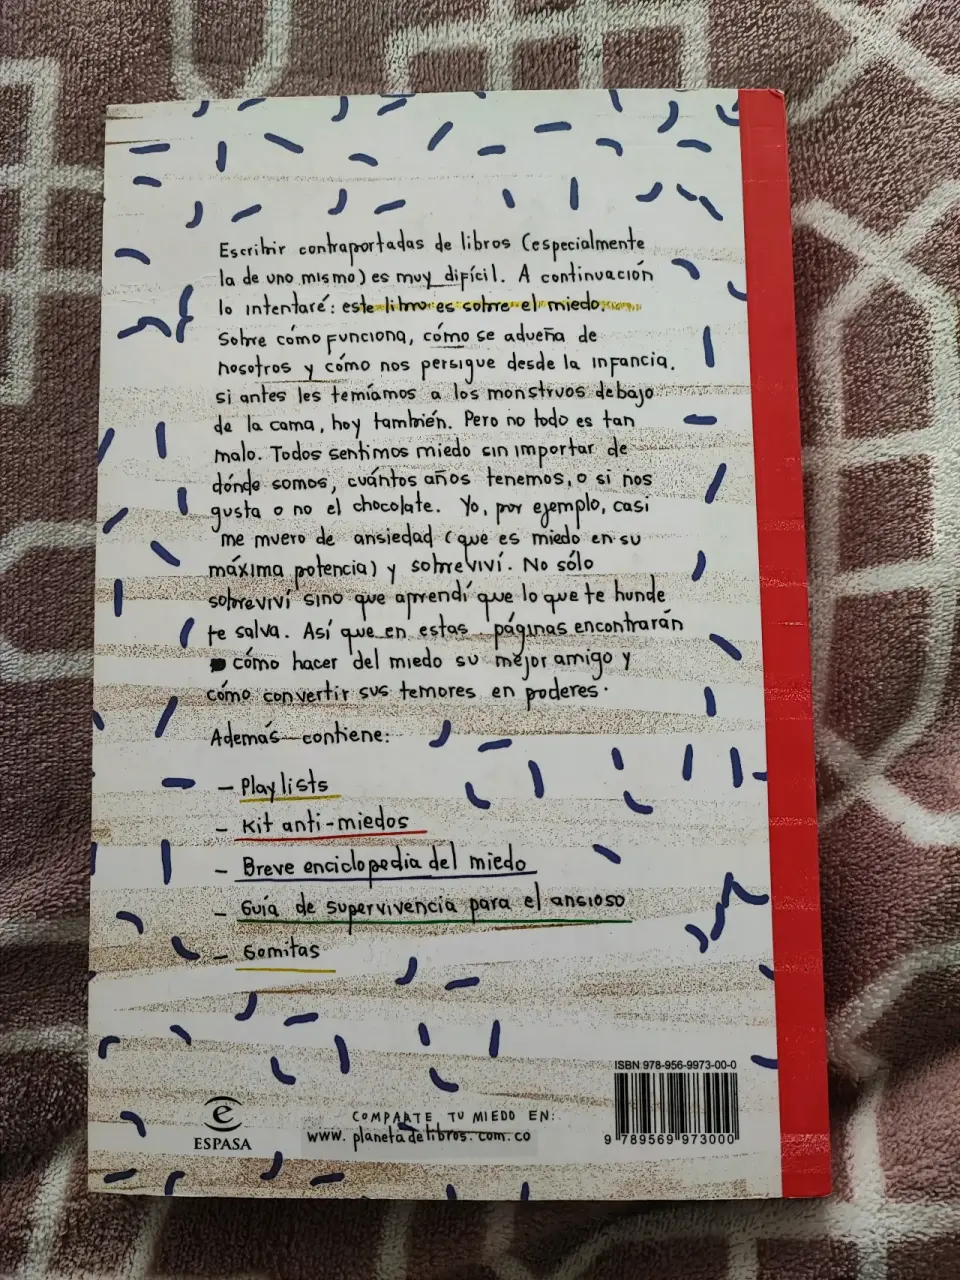 Escribir contraportadas de libros (especialmente
la de uno mismo) es muy difícil. A continuación
lo intentaré: este libro es sobre el miedo.
Sobre cómo funciona, cómo se adueña de
nosotros y cómo nos persigue desde la infancia.
si antes les temíamos a los monstruos debajo
de la cama, hoy también. Pero no todo es tan
malo. Todos sentimos miedo sin importar de
dónde somos, cuántos años tenemos, o si nos
gusta o no el chocolate. Yo, por ejemplo, casi
me muero de ansiedad (que es miedo en su
máxima potencia) y sobreviví. No sólo
sobreviví sino que aprendí que lo que te hunde
te salva. Así que en estas páginas encontrarán
cómo hacer del miedo su mejor amigo y
cómo convertir sus temores en poderes.
Además contiene:
- Playlists
- Kit anti-miedos
- Breve enciclopedia del miedo
- Guía de supervivencia para el ansioso
- Gomitas
ISBN 978-956-9973-00-0
9 789569 973000
e
ESPASA
COMPARTE TU MIEDO EN:
www.planetadelibros.com.co